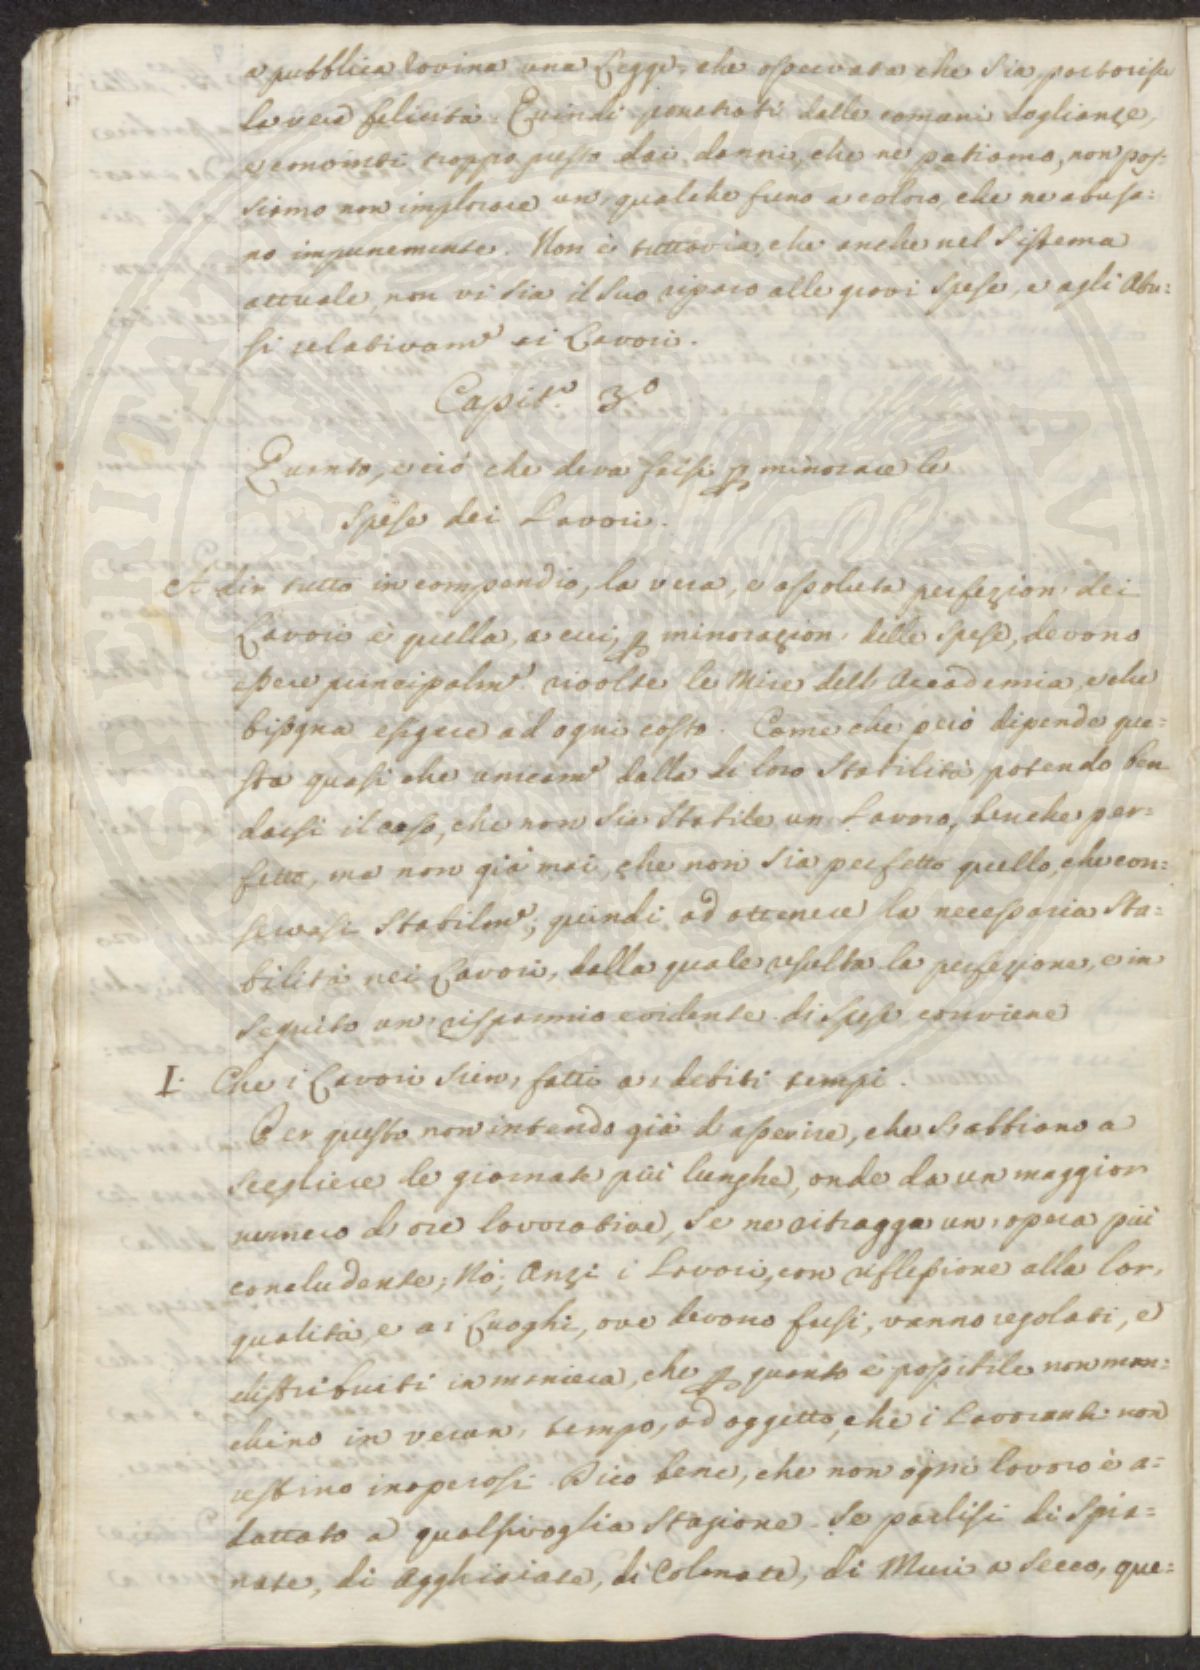 a pubblica rovina una Legge, che osservata che sia, partorisce
la vera felicità. Quindi penetrati dalle comuni doglianze,
e convinti troppo presto dai danni, che ne patiamo, non pos=
siamo non implorare un qualche freno a coloro, che ne abusa=
no impunemente. Non è tuttavia, che anche nel Sistema
attuale, non vi sia il suo riparo alle gravi Spese, e agli Abu=
si relativamᵉ ai Lavori.
Capit.º 3.º
Quanto, e ciò che deva farsi ꝑ minorare le
Spese dei Lavori.
A dir tutto in compendio, la vera, e assoluta perfezion, dei
Lavori è quella, a cui, ꝑ minorazion, delle Spese, devono
essere principalmᵉ. rivolte le Mire dell, Accademia, e che
bisogna esigere ad ogni costo. Come che però dipende que=
sta quasi che unicamᵉ dalla di loro Stabilità potendo ben
darsi il caso, che non sia Stabile un, Lavoro, benche per=
fetto, ma non già mai, che non sia perfetto quello, che con=
servasi Stabilmᵉ; quindi ad ottenere la necessaria Sta=
bilità nei Lavori, dalla quale resulta la perfezione, e in
seguito un, risparmio evidente di Spese conviene
I. Che i Lavori sien, fatti a, debiti tempi.
Per questo non intendo già d, asserire, che s, abbiano a
scegliere le giornate più lunghe, onde da un maggior
numero d, ore lavorative, se ne ritragga un, opera più
concludente; Nò; Anzi i Lavori, con riflessione alla lor,
qualità, e ai Luoghi, ove devono farsi, vanno regolati, e
distribuiti in maniera, che ꝑ quanto è possibile non man=
chino in verun, tempo, ad oggetto, che i Lavoranti non
restino inoperosi. Dico bene, che non ogni lavoro è a=
dattato a qualsivoglia Stagione. Se parlisi di Spia=
nate, di Agghiaiate, di Colmate, di Muri a Secco, que=